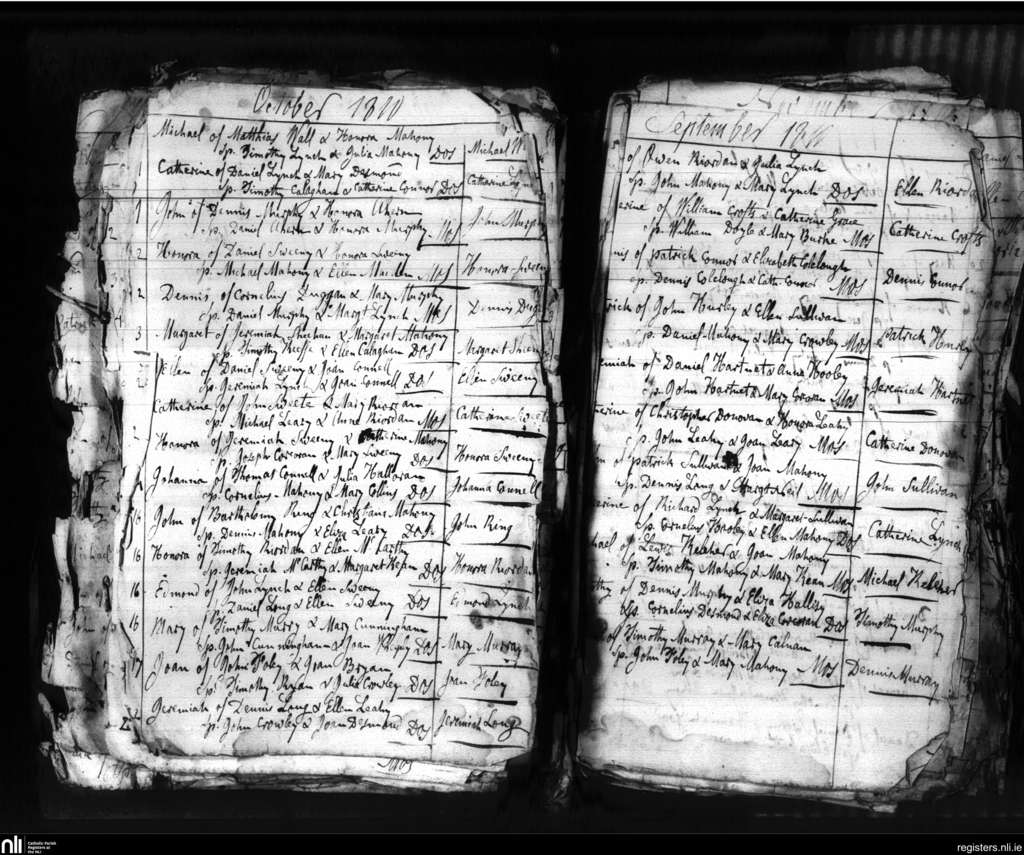 October 1811
Michael of Matthias Wall & Honora Mahony
Sp. Timothy Lynch & Julia Mahony DOS Michael W
1 Catherine of Daniel Lynch & Mary Desmond
Sp. Timothy Calaghan & Catherine Connor DOS Catherine Lyn
1 John of Dennis Murphy & Honora Ahern
Sp. Daniel Ahern & Honora Murphy MOS John Murphy
2 Honora of Daniel Sweeny & Honora Sweeny
Sp. Michael Mahony & Ellen MOS Honora Sweeny
2 Dennis of Cornelius Duggan & Mary Murphy
Sp. Daniel Murphy & Margt Lynch MOS Dennis Dug
3 Margaret of Jeremiah Sheehan & Margaret Mahony
Sp. Timothy Keeffe & Ellen Calaghan DOS Margaret
Ellen of Daniel Sweeny & Joan Connell
Sp. Jeremiah Lynch & Joan Connell DOS Ellen Sweeny
Catherine of John Sweete & Mary Riordan
Sp. Michael Leary & Riordan MOS Catherine Sweete
Honora of Jeremiah Sweeny & Catherine Mahony
Sp. Joseph Corcoran & Mary Sweeny DOS Honora Sweeny
Johanna of Thomas Connell & Julia Halloran
Sp. Cornelius Mahony & Mary Collins DOS Johanna Connell
John of Bartholomw Ring & Mahony
Sp. Dennis Mahony & Eliza Leary DOS John Ring
16 Honora of Timothy Riordan & Ellen McCarthy
Sp. Jeremiah McCarthy & Margaret DOS Honora Riordan
16 Edmond of John Lynch & Ellen Sweeny
Sp. Daniel Long & Ellen Sweeny DOS Edmond Lynch
16 Mary of Timothy Murry & Mary Cunningham
Sp. John Cunningham & Joan DOS Mary Murray
17 Joan of John Foley & Joan Bryan
Sp. Timothy Bryan & Julia Crowley DOS Joan Foley
Jeremiah of Dennis Long & Ellen Leahy
Sp. John Crowley & Joan Desmond DOS Jeremiah Long
September 1811
of Owen Riordan & Julia Lynch
Sp. John Mahony & Mary Lynch DOS Ellen Riorda
erine of William Crofts & Catherine Grace
Sp. William Doyle & Mary Burke MOS Catherine Crofts
nis of Patrick Connor & Elizabeth Colclough
Sp. Dennis Colclough & Cath Connor MOS Dennis Connor
rick of John Hurley & Ellen Sullivan
Sp. Daniel Mahony & Mary Crowley MOS Patrick Hurley
emiah of Daniel Hartnet & Anna Hooley
Sp. John Hartnet & Mary MOS Jeremiah Hartnet
erine of Christopher Donovan & Honora Leahy
Sp. John Leahy & Joan Leary MOS Catherine Donovan
of Patrick Sullivan & Joan Mahony
Sp. Dennis Long & Margt MOS John Sullivan
erine of Richard Lynch & Margaret Sullivan
Sp. Cornelius Hooley & Ellen Mahony DOS Catherine Lynch
hael of Lewis Keleher & Joan Mahony
Sp. Timothy Mahony & Mary Kean MOS Michael Keleher
thy of Dennis Murphy & Eliza
Sps. Cornelius Desmond & Eliza Corcoran DOS Timothy Murphy
of Timothy Murray & Mary
Sp. John Foley & Mary Mahony MOS Dennis Murray
nli Catholic Parish Registers at the NLI
registers.nli.ie